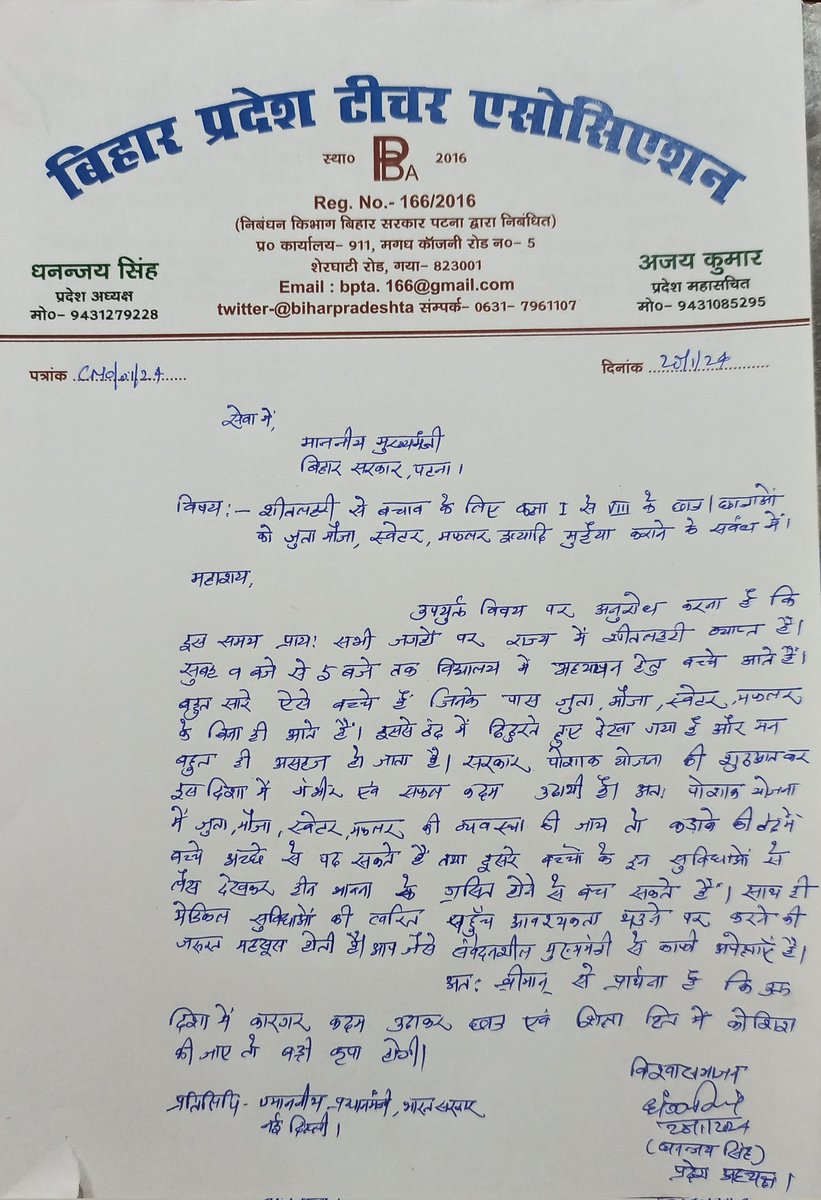 बिहार प्रदेश टीचर एसोसिएशन
स्था० BPTA 2016
Reg. No.- 166/2016
(निबंधन किभाग बिहार सरकार पटना द्वारा निबंधित)
प्र० कार्यालय- 911, मगध कॉजनी रोड न०- 5
शेरघाटी रोड, गया- 823001
Email : bpta. 166@gmail.com
twitter-@biharpradeshta संम्पर्क- 0631- 7961107
धनन्जय सिंह
प्रदेश अध्यक्ष
मो०- 9431279228
अजय कुमार
प्रदेश महासचित
मो०- 9431085295
पत्रांक CMO/01/24
दिनांक 20/1/24
सेवा में,
माननीय मुख्यमंत्री
बिहार सरकार, पटना।
विषय:- शीतलहरी से बचाव के लिए कक्षा I से VIII के छात्र/छात्राओं
को जुता मौजा, स्वेटर, मफलर इत्यादि मुहैया कराने के संबंध में।
महाशय,
उपर्युक्त विषय पर अनुरोध करना है कि
इस समय प्राय: सभी जगहों पर राज्य में शीतलहरी व्याप्त है।
सुबह 9 बजे से 5 बजे तक विद्यालय में अध्यापन हेतु बच्चे आते हैं।
बहुत सारे ऐसे बच्चे हैं जिनके पास जुता, मौजा, स्वेटर, मफलर
के बिना ही आते हैं। इससे ठंढ में ठिठुरते हुए देखा गया है और मन
बहुत ही असहज हो जाता है। सरकार पोशाक योजना की शुरुआत कर
इस दिशा में गंभीर एवं सफल कदम उठायी है। अत: पोशाक योजना
में जुता, मौजा, स्वेटर, मफलर की व्यवस्था की जाय तो कड़ाके की ठंढ में
बच्चे अच्छे से पढ सकते हैं तथा दूसरे बच्चों के इन सुविधाओं से
लैस देखकर हीन भावना के ग्रसित होने से बच सकते हैं। साथ ही
मेडिकल सुविधाओं की त्वरित पहुँच आवश्यकता पड़ने पर करने की
जरूरत महसूस होती है। आप जैसे संवेदनशील मुख्यमंत्री से काफी अपेक्षाएँ है।
अत: श्रीमान् से प्रार्थना है कि उक्त
दिशा में कारगर कदम उठाकर छात्र एवं शिक्षा हित में कोशिश
की जाए तो बड़ी कृपा होगी।
विश्वासभाजन
20/1/2024
(धनन्जय सिंह)
प्रदेश अध्यक्ष।
प्रतिलिपि - माननीय प्रधानमंत्री, भारत सरकार
नई दिल्ली।